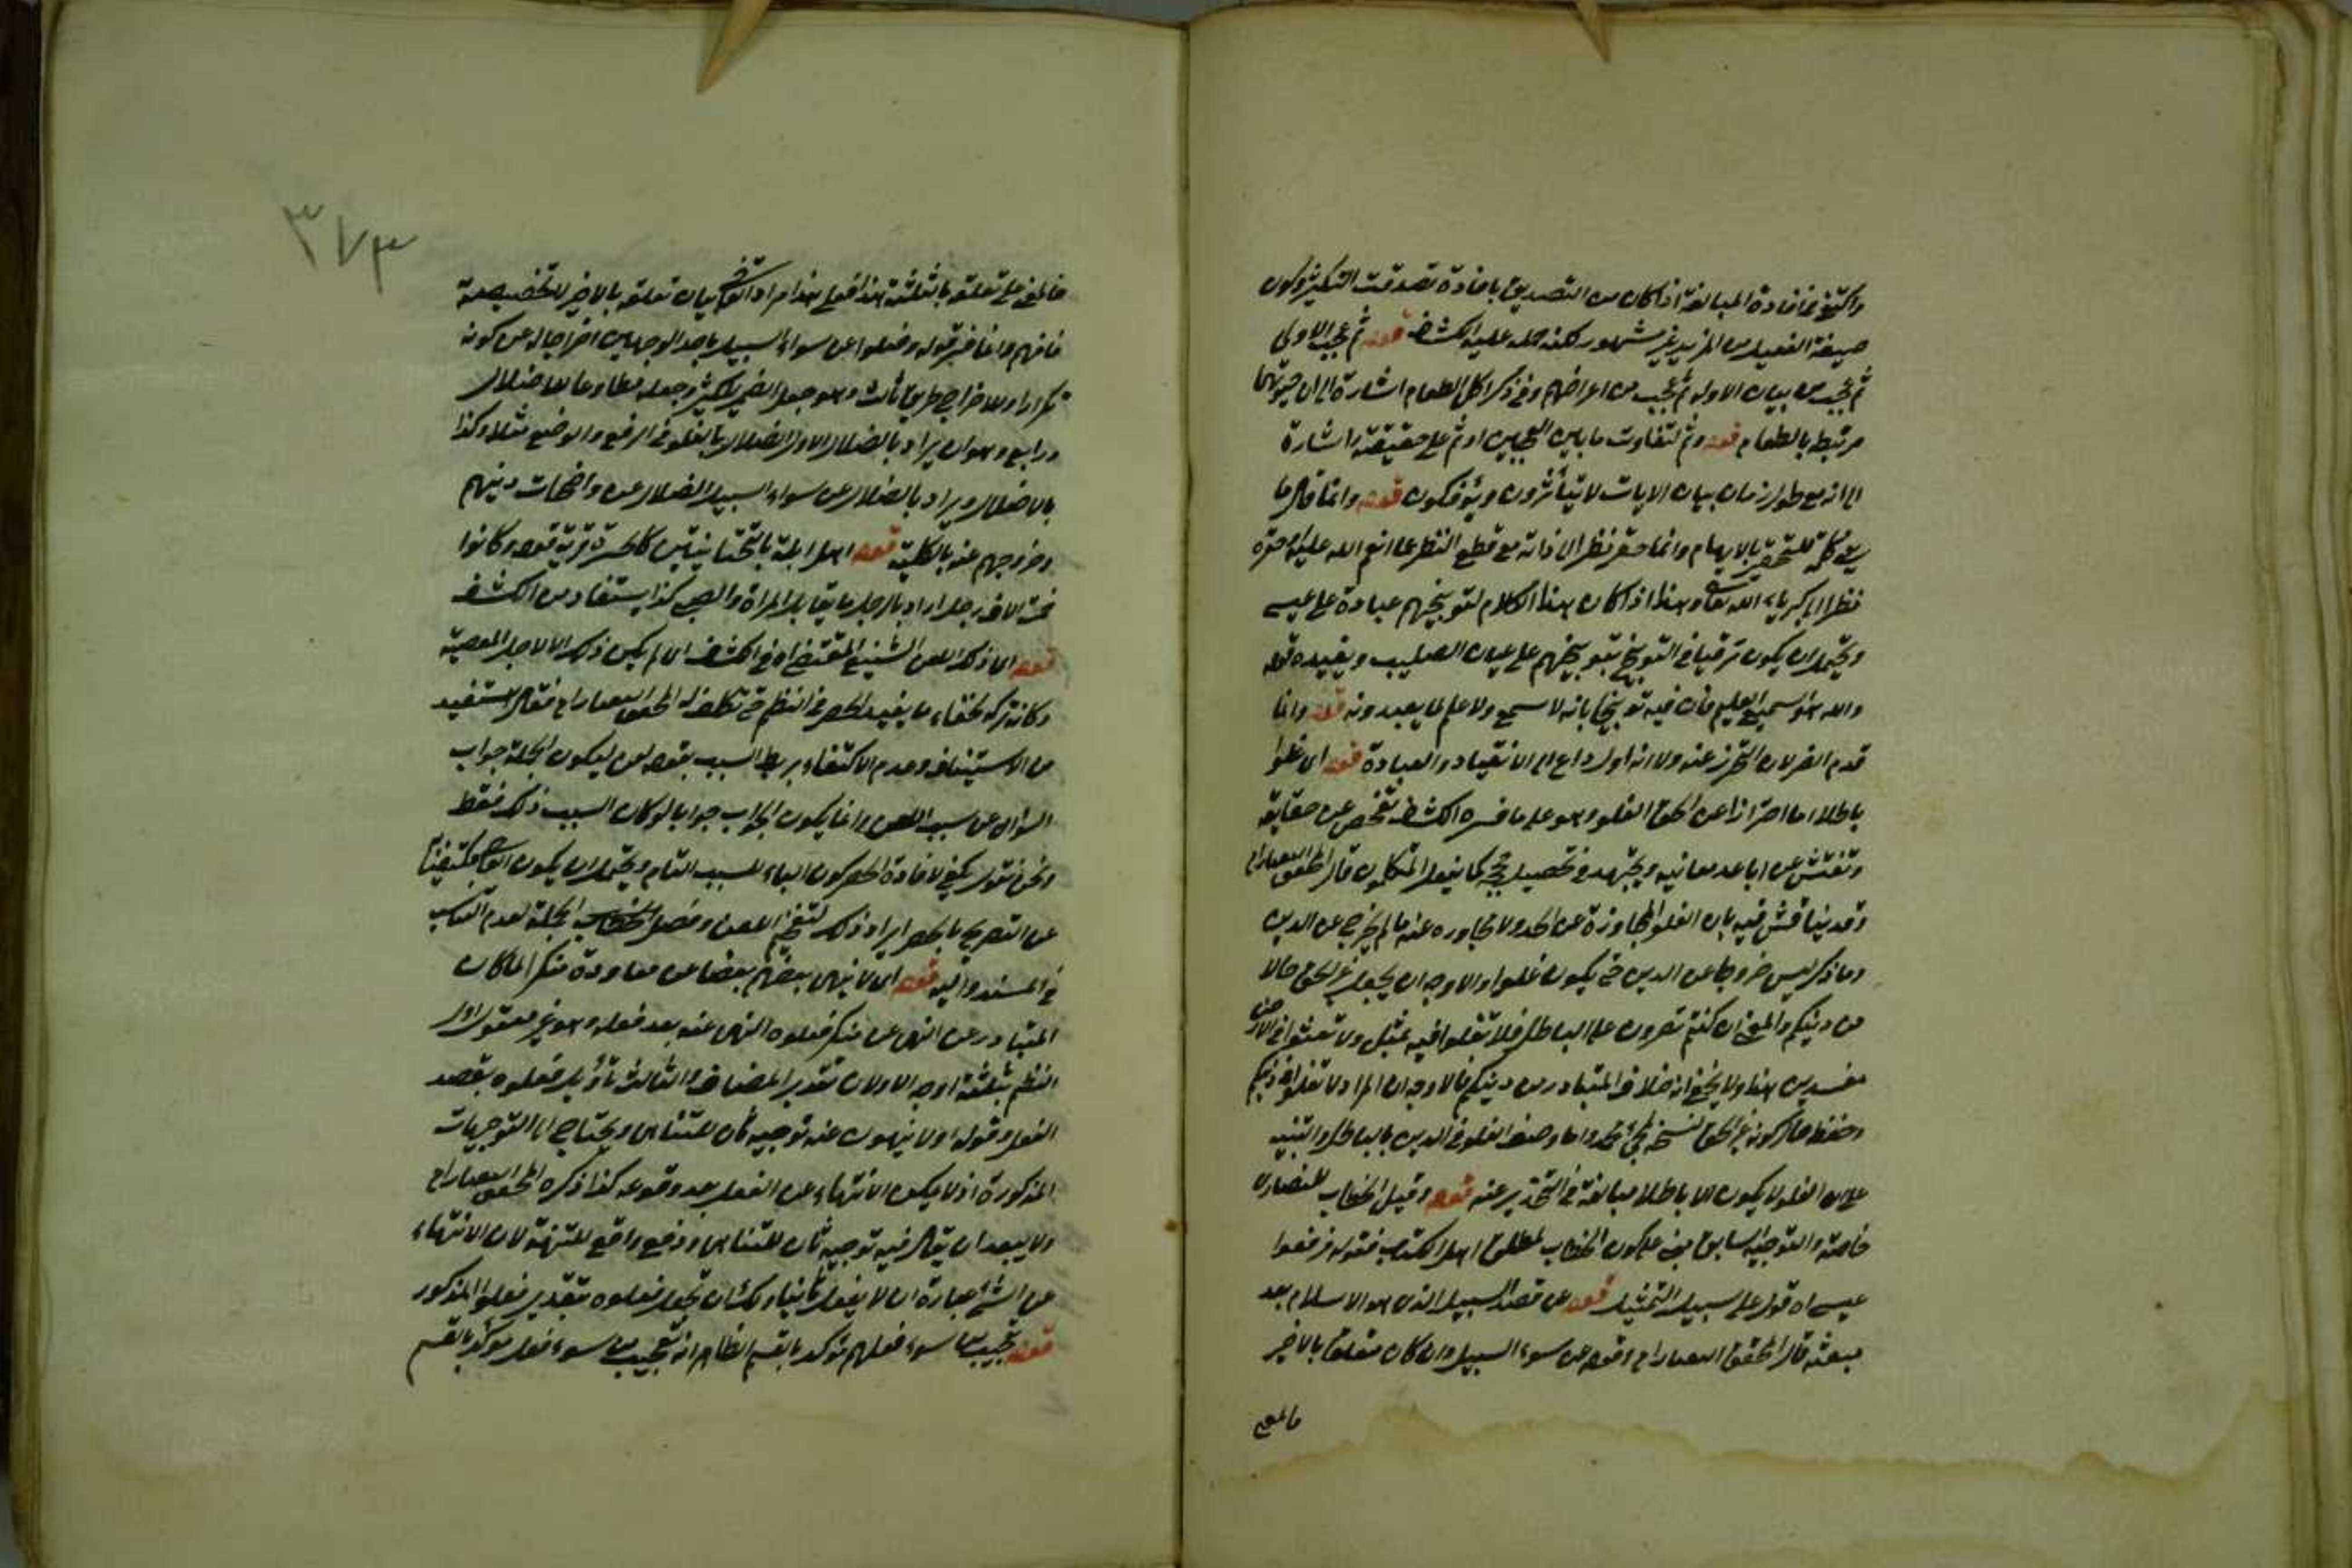 واكتفى بمافادة المبالغة اذا كان من التصديق بافادة تصدقت التكثير وكون
صيغة الفعيل من المزيد غير مشهور لكنه حمله عليه الكشف قوله ثم عجب الاولى
ثم عجب من بيان الاول ثم عجب من اعراضهم وفى ذكر اكل الطعام اشارة الى ان حيوتهما
مرتبط بالطعام قوله وثم لتفاوت ما بين العجبين او ثم على حقيقته واشارة
الى انه مع طول زمان بيان الايات لا يتأثرون ويؤفكون قوله وانما قال ما
بالابهام وانما حقر نظرا الى ذاته مع قطع النظر عما انعم الله عليه وحقره
نظرا الى كبرياء الله تعالى وهذا اذا كان هذا الكلام لتوبيخهم عبادة على عيسى
ويحتمل ان يكون ترقيا فى التوبيخ بتوبيخهم على عبادة الصليب ويفيده قوله
والله هو السميع العليم فان فيه توبيخا بانه لا سمع ولا علم لما يعبدونه قوله وانما
قدم الضر لان التحرز عنه ولانه اول داع الى الانقياد والعبادة قوله اى غلوا
باطلا اما احترازا عن الحق الغلو وهو على ما فسره الكشف تفحص عن حقايقه
وتفتش عن اباعد معانيه ويجتهد فى تحصيل حججه كما يفعل المتكلمون قال المحقق التفتازانى
وقد يناقش فيه بان الغلو المجاوزة عن الحد ولا مجاوزة عنه ما لم يخرج عن الدين
وما ذكر ليس خروجا عن الدين حتى يكون غلوا والاوجه ان يجعل غير الحق حالا
من دينكم والمعنى ان كنتم تصرون على الباطل فلا تغلوا فيه بمثل ولا تعثوا فى الارض
مفسدين هذا ولا يخفى انه خلاف المتبادر من دينكم فالاوجه ان المراد لا تغلوا فى دينكم
واما وصف الغلو فى الدين بالباطل والتنبيه
على ان الغلو لا يكون الا باطلا مبالغة فى التحذير عنه قوله وقيل الخطاب للنصارى
خاصة والتوجيه السابق مبنى على كون الخطاب لمطلق اهل الكتاب فقوله فرفعوا
عيسى اه قول على سبيل التمثيل قوله عن قصد السبيل الذى هو الاسلام بعد
مبعثه قال المحقق التفتازانى قوله عن سواء السبيل وان كان متعلق بالاخير
فالمعنى
٣٧٣
فالمعنى على تعلقه بالثلثة هذا مراد القاضى بيان تعلقه بالاخير لا تخصيصه
فافهم وانما فسر قوله وضلوا عن سواء السبيل باحد الوجهين اخراجا له عن كونه
تكرارا وللاخراج طريق ثالث وهو جعل الضمير لكثير وجعله مطاوعا للاضلال
ورابع وهو ان يراد بالضلال الاول الضلال بالغلو فى الرفع والوضع مثلا وكذا
بالاضلال ويراد بالضلال عن سواء السبيل الضلال عن واضحات دينهم
وخروجهم عنه بالكلية قوله اهل ايلة قرية قوله وكانوا
خمسة الاف رجل اراد بالرجل ما يقابل المراة والصبى كذا يستفاد من الكشف
قوله اى ذلك اللعن الشنيع المقتضى اه فى الكشف اى لم يكن ذلك الا لاجل المعصية
وكانه تركه لخفاء ما يفيد الحصر فى النظم حتى تكلف له المحقق التفتازانى فقال استفيد
من الاستيناف وعدم الاكتفاء بربط السبب بقوله لعن ليكون الجملة جواب
السؤال عن سبب اللعن وانما يكون الجواب جوابا لو كان السبب ذلك فقط
ونحن نقول يكفى لافادة الحصر كون الباء للسبب التام ويحتمل ان يكون القاضى مكتفيا
عن التصريح بالحصر ايراد ذلك لتفخيم اللعن وفصل الخطاب الجملة لعدم التناسب
فى المسند واليه قوله اى لا ينهى بعضهم بعضا عن معاودة منكر لما كان
المتبادر عن النهى عن منكر فعلوه النهى عنه بعد فعله وهو غير معقول اول
النظم بثلثة اوجه الاولان تقدير المضاف والثالث تأويل فعلوه بقصد
الفعل وقوله اولا ينهون عنه توجيه ثان للتناهى ويحتاج الى التوجيهات
المذكورة اذ لا يمكن الانتهاء عن الفعل بعد وقوعه كذا ذكره المحقق التفتازانى
ولا يبعد ان يقال فيه توجيه ثان للتناهى ودفع واقع للشبهة لان الانتهاء
عن الشئ عبارة ان لا يفعل ثانيا ولك ان تجعل فعلوه بتقدير فعلوا المذكور
قوله تعجيب من سوء فعلهم مؤكد بالقسم الظاهر انه تعجيب من سوء فعل مؤكد بالقسم